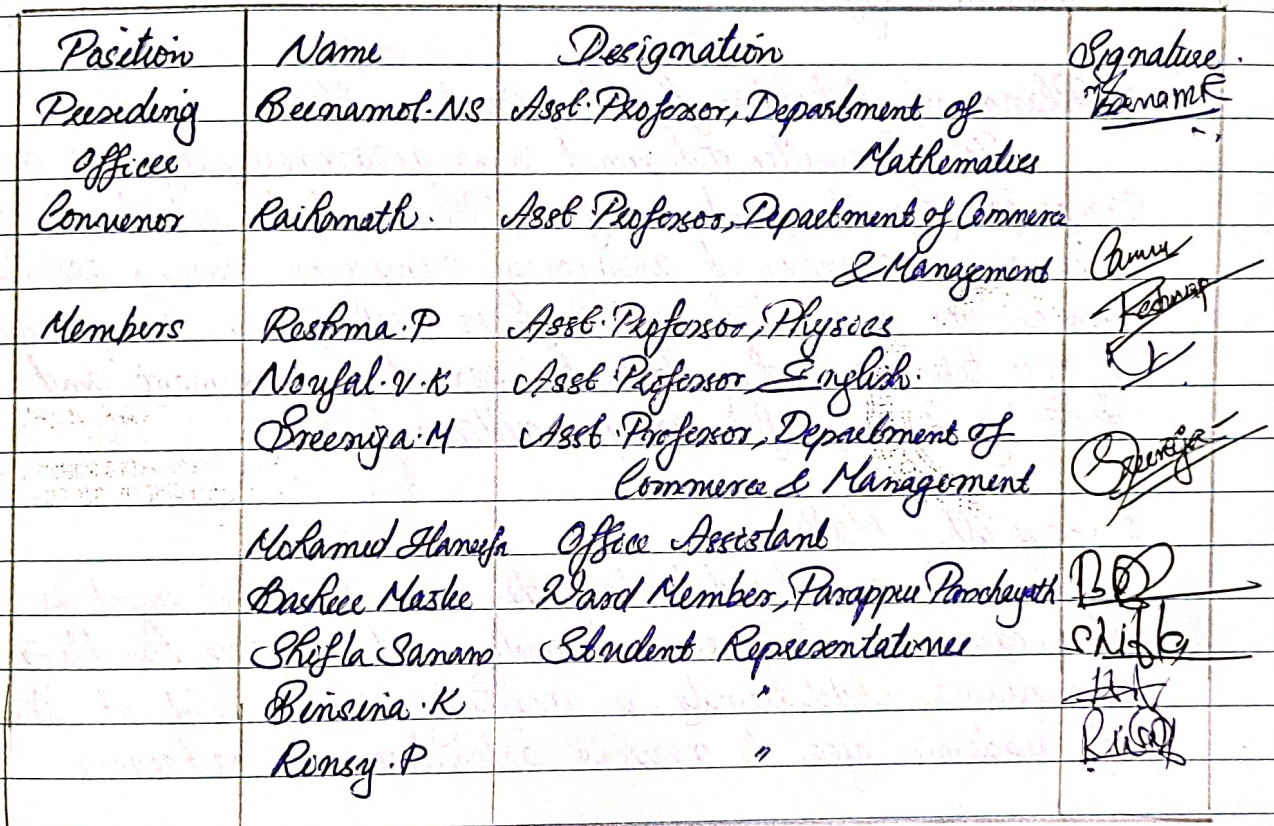 Position Name Designation Signature.
Presiding Beenamol.NS Asst. Professor, Department of Beenamol
Officer Mathematics
Convenor Raihamath. Asst. Professor, Department of Commerce
& Management
Members Reshma.P Asst. Professor, Physics Reshmap
Noufal.V.K Asst Professor, English.
Sreenija.M Asst. Professor, Department of Sreenija
Commerce & Management
Mohamed Haneefa Office Assistant
Basheer Master Ward Member, Parappur Panchayath
Shifla Sanam Student Representatives Shifla
Binsina.K "
Ronsy.P "